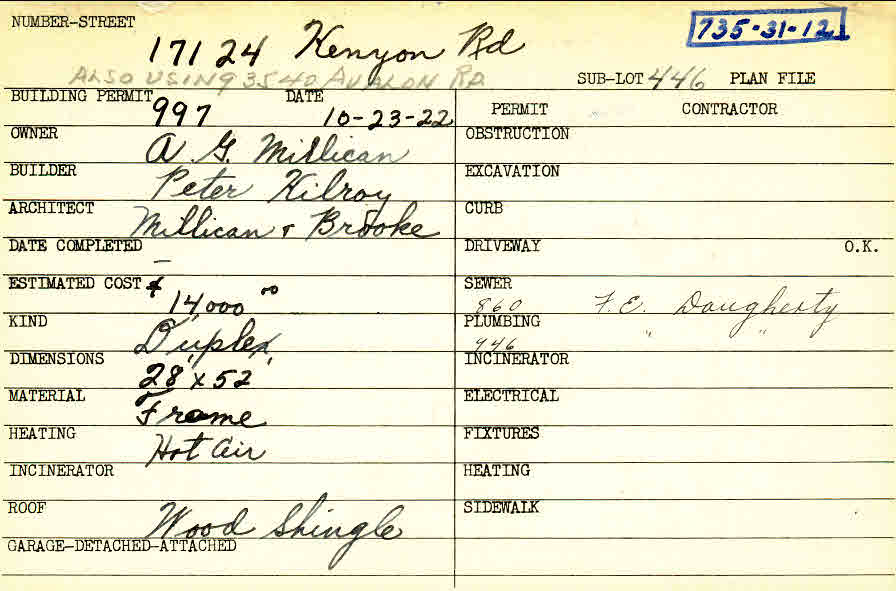 NUMBER-STREET 17124 Kenyon Rd 735-31-12
ALSO USING 3540 AVALON RD. SUB-LOT 446 PLAN FILE
BUILDING PERMIT 997 DATE 10-23-22
OWNER A G. Millican
BUILDER Peter Kilroy
ARCHITECT Millican & Brooke
DATE COMPLETED –
ESTIMATED COST $ 14,000 00
KIND Duplex
DIMENSIONS 28' x 52'
MATERIAL Frame
HEATING Hot Air
INCINERATOR
ROOF Wood Shingle
GARAGE-DETACHED-ATTACHED
PERMIT CONTRACTOR
OBSTRUCTION
EXCAVATION
CURB
DRIVEWAY O.K.
SEWER 860 F. E. Daugherty
PLUMBING 946 " "
INCINERATOR
ELECTRICAL
FIXTURES
HEATING
SIDEWALK